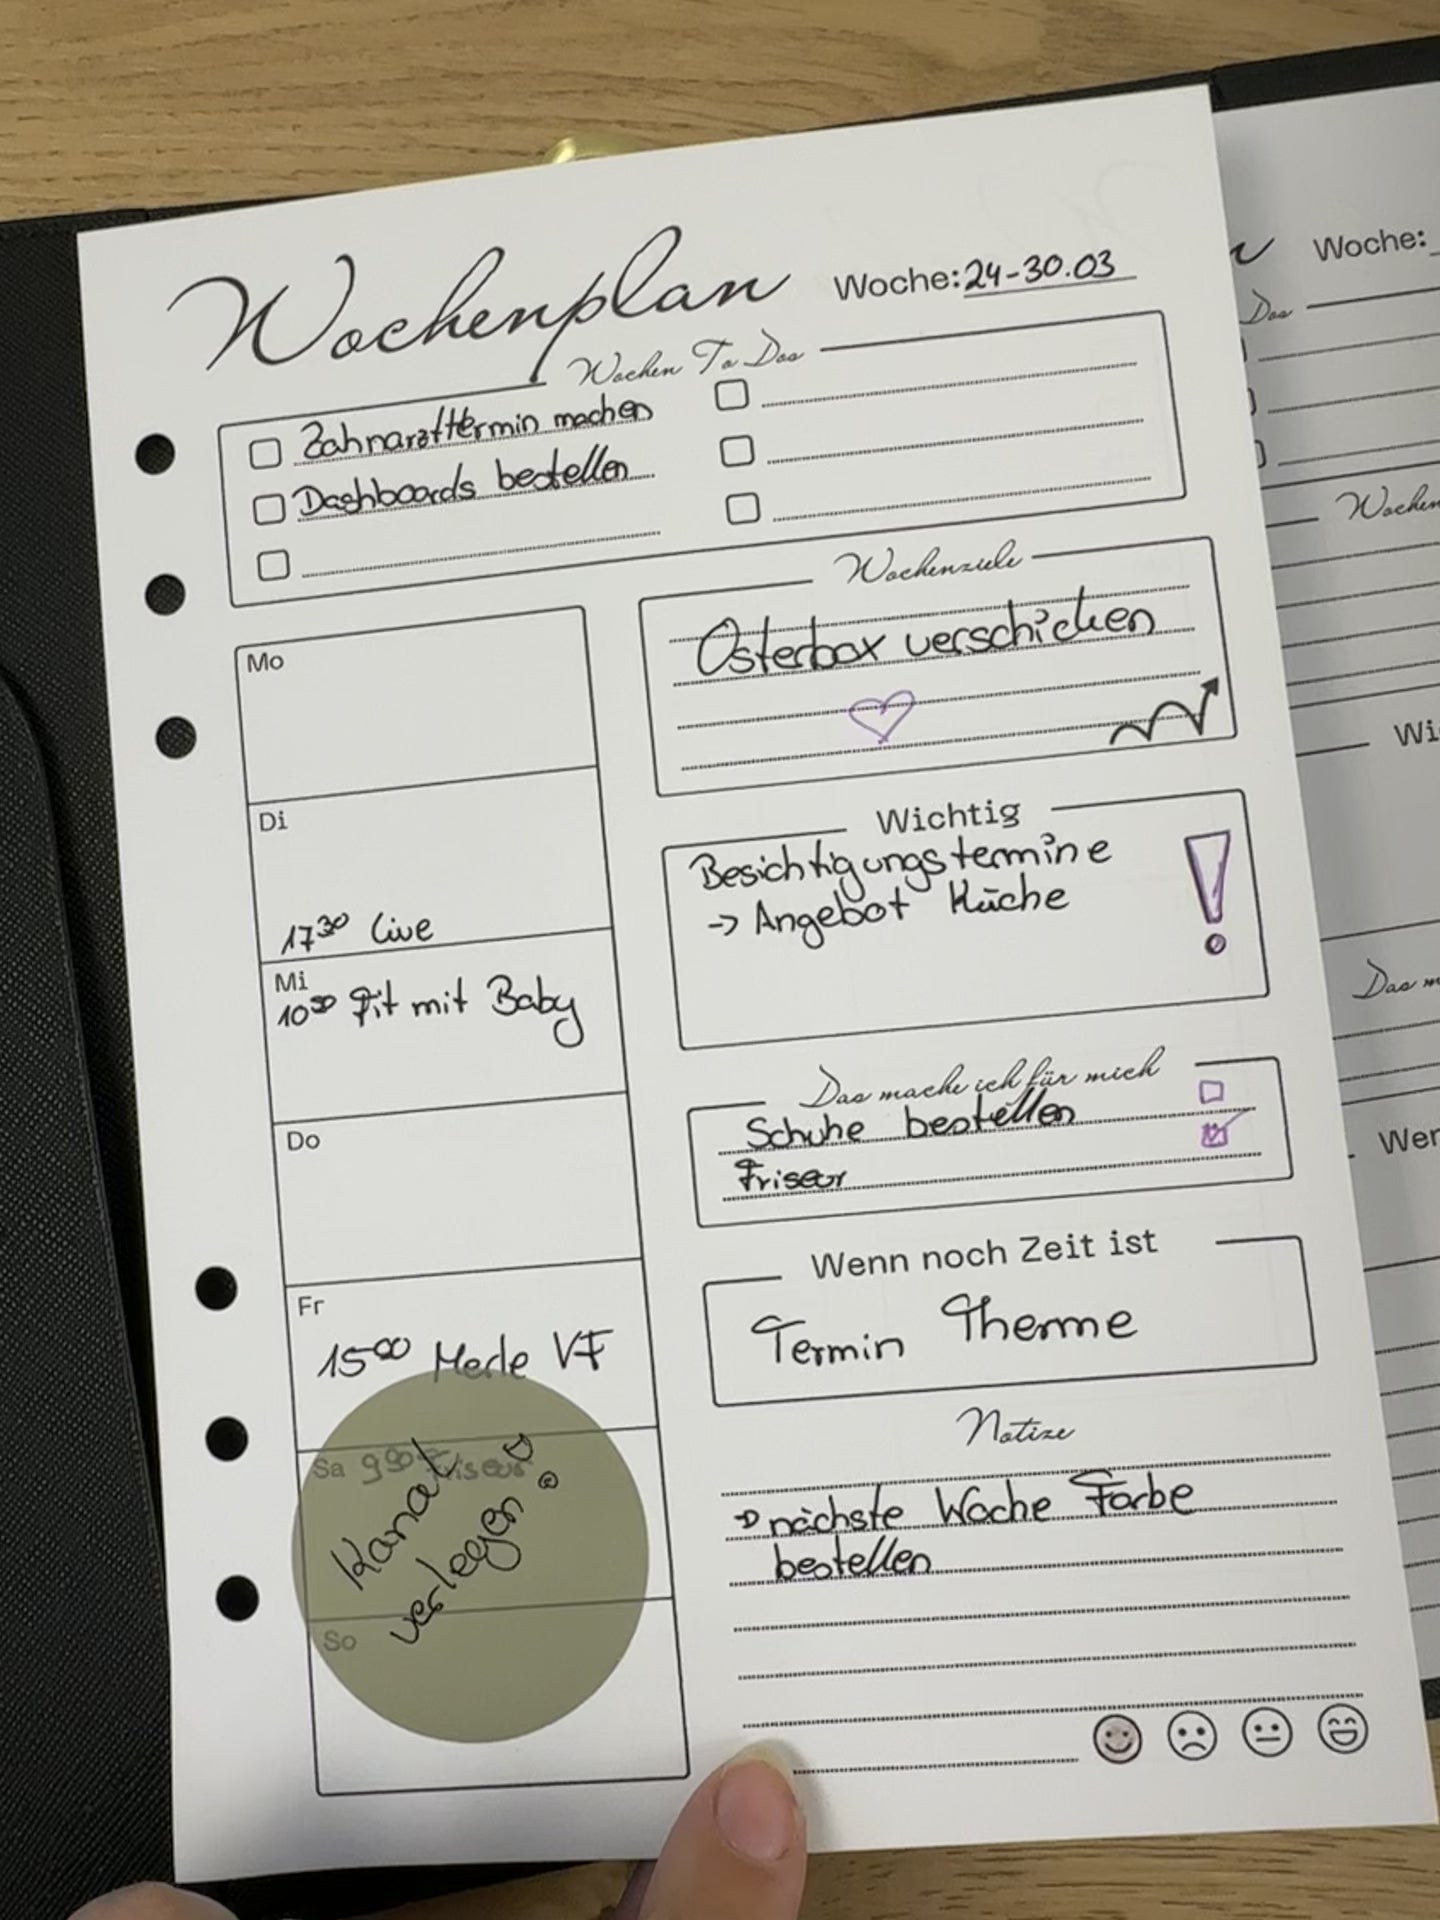 Wochenplan Woche: 24-30.03
Wochen To Dos
Zahnarzttermin machen
Dashboards bestellen
Mo
Di
17³⁰ Live
Mi
10³⁰ Fit mit Baby
Do
Fr
15⁰⁰ Merle VF
Sa 9⁰⁰ Friseur
Kanal
verlegen
So
Wochenziele
Osterbox verschicken
Wichtig
Besichtigungstermine
-> Angebot Küche
Das mache ich für mich
Schuhe bestellen
Friseur
Wenn noch Zeit ist
Termin Therme
Notize
-> nächste Woche Farbe
bestellen
Woche:
Dos
Wochen
Wi
Das m
Wen